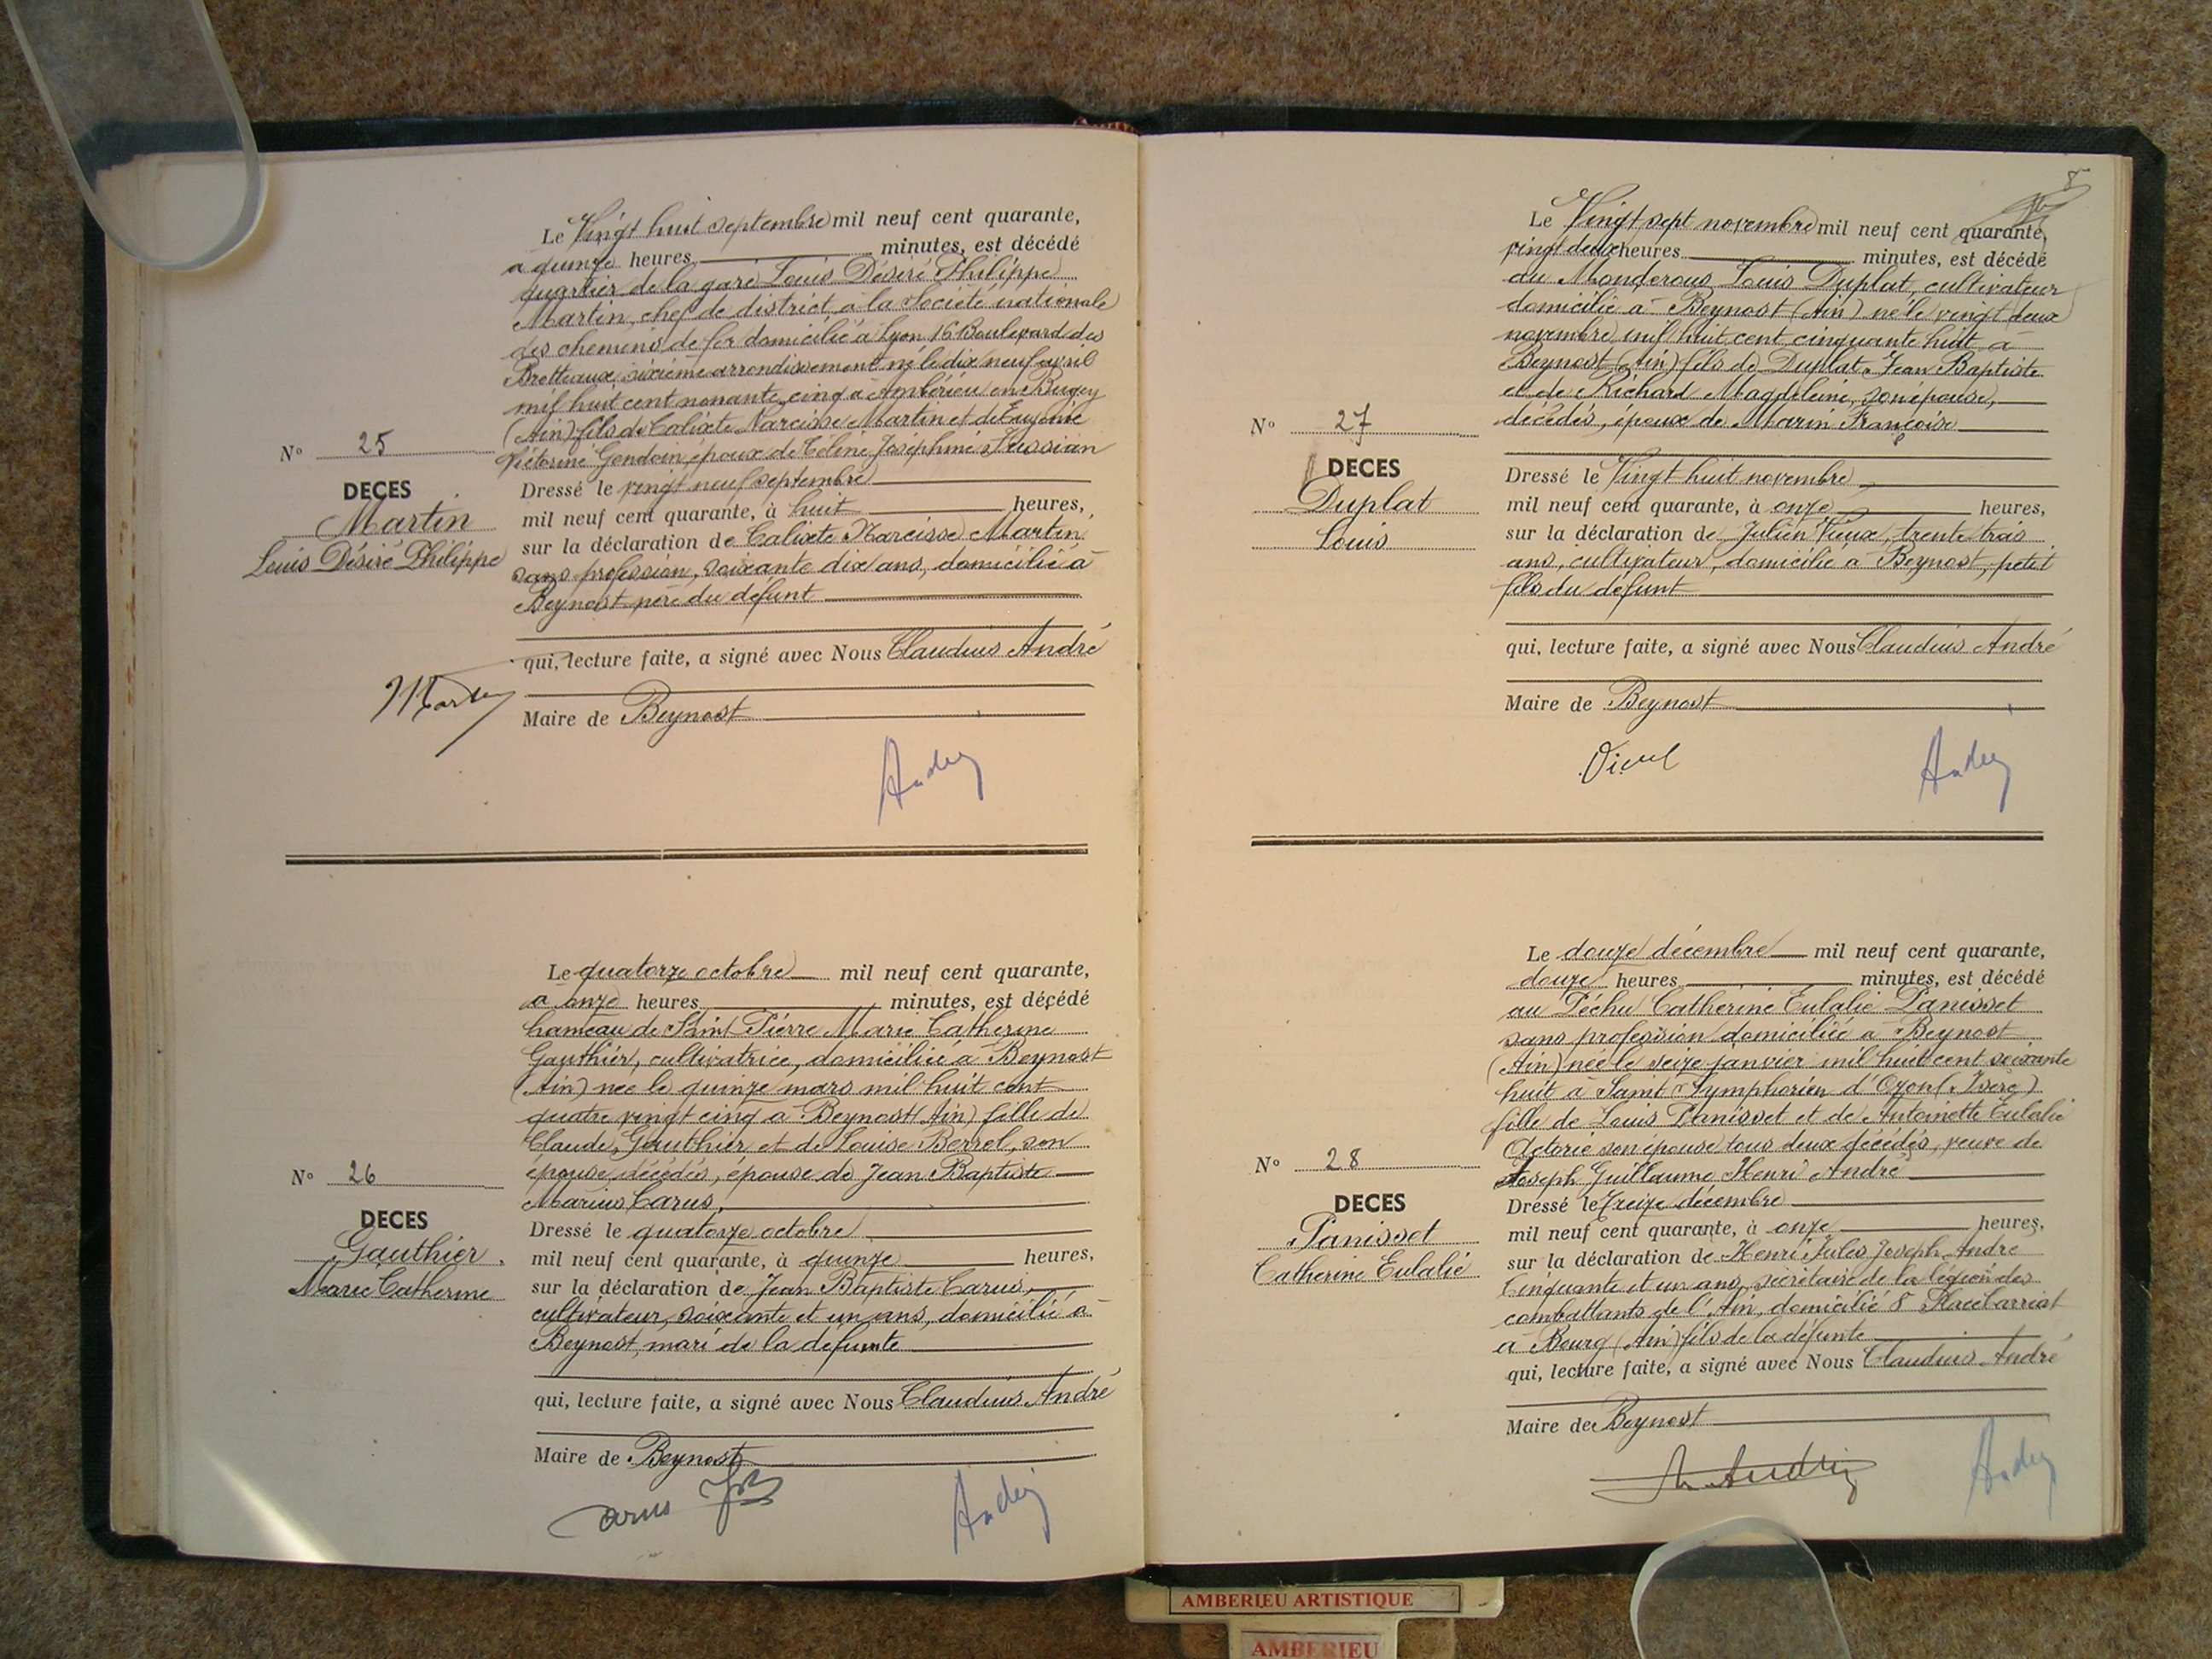 Le Vingt huit septembre mil neuf cent quarante,
a quinze heures minutes, est décédé
quartier de la gare Louis Désiré Philippe
Martin, chef de district à la Société nationale
des chemins de fer domicilié à Lyon 16 Boulevard des
Brotteaux sixième arrondissement né le dix neuf avril
mil huit cent nonante cinq à Ambérieu en Bugey
(Ain) fils de Calixte Narcisse Martin et de Eugénie
Victorine Gendoin époux de Céline Joséphine
N° 25
DECES
Martin
Louis Désiré Philippe
Dressé le vingt neuf septembre
mil neuf cent quarante, à huit heures,
sur la déclaration de Calixte Narcisse Martin
sans profession, soixante dix ans, domicilié à
Beynost père du défunt
qui, lecture faite, a signé avec Nous Claudius André
Maire de Beynost
Martin
André
Le quatorze octobre mil neuf cent quarante,
a onze heures minutes, est décédé
hameau de Saint Pierre Marie Catherine
Gauthier, cultivatrice, domiciliée à Beynost
(Ain) née le quinze mars mil huit cent
quatre vingt cinq a Beynost (Ain) fille de
Claude Gauthier et de Louise Berrel, son
épouse décédés, épouse de Jean Baptiste
Marius Carus,
N° 26
DECES
Gauthier.
Marie Catherine
Dressé le quatorze octobre
mil neuf cent quarante, à quinze heures,
sur la déclaration de Jean Baptiste Carus,
cultivateur, soixante et un ans, domicilié à
Beynost, mari de la défunte
qui, lecture faite, a signé avec Nous Claudius André
Maire de Beynost
Carus
André
8
Le Vingt sept novembre mil neuf cent quarante,
vingt deux heures minutes, est décédé
au Monderoux Louis Duplat, cultivateur
domicilié à Beynost (Ain) né le vingt deux
novembre mil huit cent cinquante huit à
Beynost (Ain) fils de Duplat Jean Baptiste
et de Richard Magdeleine, son épouse,
décédés, époux de Marin Françoise
N° 27
DECES
Duplat
Louis
Dressé le Vingt huit novembre
mil neuf cent quarante, à onze heures,
sur la déclaration de Julien Vieux, trente trois
ans, cultivateur, domicilié à Beynost, petit
fils du défunt
qui, lecture faite, a signé avec Nous Claudius André
Maire de Beynost
Vieux
André
Le douze décembre mil neuf cent quarante,
douze heures minutes, est décédé
au Péchu Catherine Eulalie Panisset
sans profession domiciliée à Beynost
(Ain) née le seize janvier mil huit cent soixante
huit à Saint Symphorien d'Ozon (Isère)
fille de Louis Panisset et de Antoinette Eulalie
Actorie son épouse tous deux décédés, veuve de
Joseph Guillaume Henri André
N° 28
DECES
Panisset
Catherine Eulalie
Dressé le Treize décembre
mil neuf cent quarante, à onze heures,
sur la déclaration de Henri Jules Joseph André
Cinquante et un ans, secrétaire de la légion des
combattants de l'Ain, domicilié 8 Place Carriat
à Bourg (Ain) fils de la défunte
qui, lecture faite, a signé avec Nous Claudius André
Maire de Beynost
André
André
AMBERIEU ARTISTIQUE
AMBERIEU